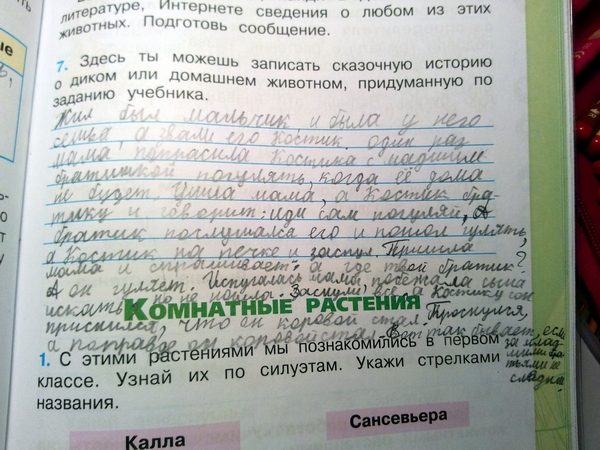 литературе, Интернете сведения о любом из этих
животных. Подготовь сообщение.
7. Здесь ты можешь записать сказочную историю
о диком или домашнем животном, придуманную по
заданию учебника.
Жил был мальчик и была у него
семья, а звали его Костик. один раз
мама попрасила Костика с младшим
братишкой погулять, когда её дома
не будет. Ушла мама, а Костик бра-
тику и говорит: иди сам погуляй, А
братик послушался его и пошол гулять,
а Костик на печке и заснул. Пришла
мама и спрашивает: а где твой братик?
А он гуляет. Испугалась мама, побежала сына
искать, но не нашла. Заснули все, а Костику сон
приснился, что он коровой стал. Проснулся,
а поправде он коровой стал. Вот так бывает, если
за млад-
шими бра-
тьями не
следить.
КОМНАТНЫЕ РАСТЕНИЯ
1. С этими растениями мы познакомились в первом
классе. Узнай их по силуэтам. Укажи стрелками
названия.
Калла
Сансевьера